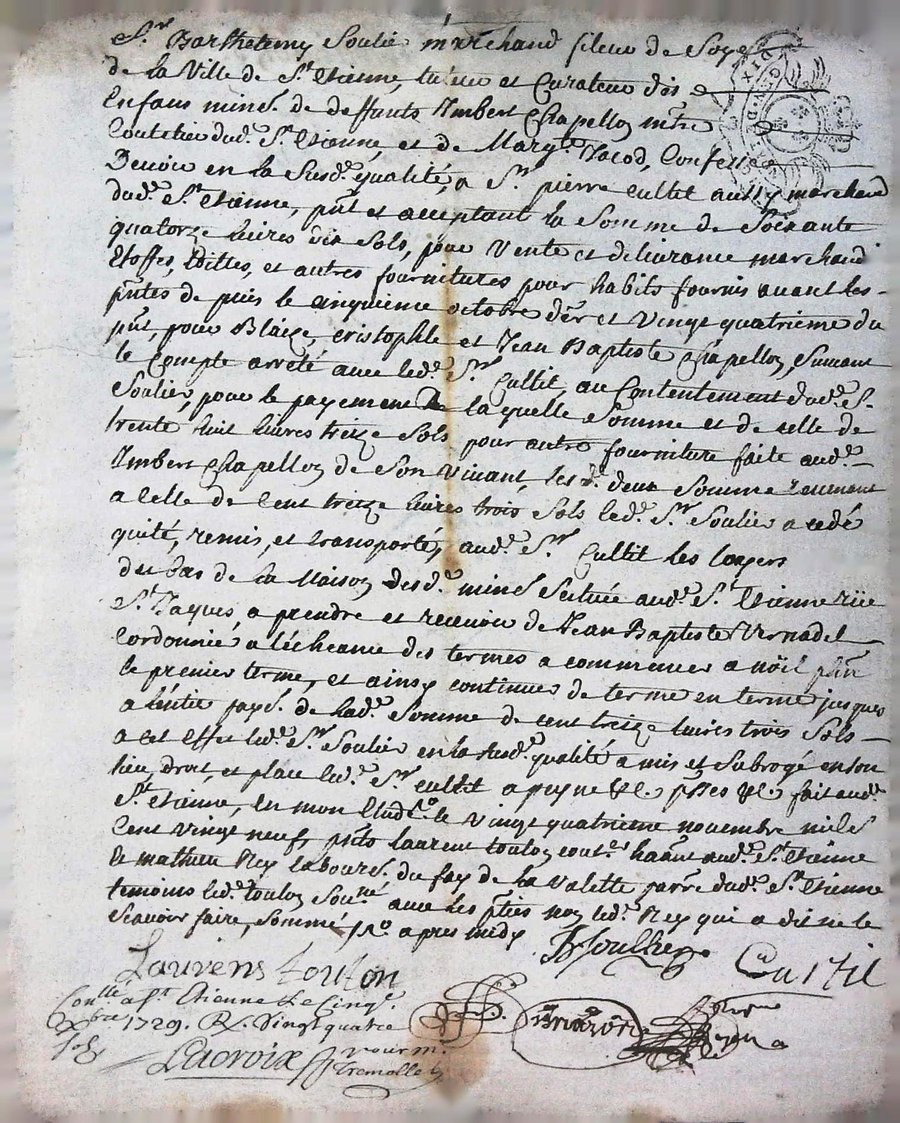 Sr. Barthelemy Soulié marchand fileur de Soye
de la Ville de St. Etienne, tuteur et Curateur des
Enfans mins. de deffunts Umbert Chapellon mtre
Coutelier dud. St. Etienne, et de Margte. Jacod, Confesse
Devoir en la Susd. qualité, a Sr. pierre Cultit aussy marchand
dud. St. Etienne, pnt et acceptant la Somme de Soixante
quatorze livres dix Sols, pour Vente et delivrance marchand
Etoffes, toilles, et autres fournitures pour habits fournis avant les
pntes depuis le cinquieme octobre der et vingt quatrieme du
pnt, pour Blaize, Cristophle et Jean Baptiste Chapellon, Suivant
le Compte arreté avec led. Sr. Cultit, au Contentement dud. Sr.
Soulier, pour le payement de laquelle Somme et de celle de
trente huit livres treize Sols pour autre fourniture faite aud.
Umbert Chapellon de Son vivant, les d. deux Somme revenant
a Celle de Cent treize livres trois Sols led. Sr. Soulier a cedé
quité, remis, et transporté, aud. Sr. Cultit les loyers
du bas de la Maison desd. mins Scituée aud. St. Etienne rüe
St. Jaques, a prendre et recevoir de Jean Baptiste Vernadel
Cordonnier a l'écheance des termes a commencer a nöel
le premier terme, et ainsy continuer de terme en terme jusques
a l'entier paye. de lad. Somme de cent treize livres trois Sols
a cet Effet led. Sr. Soulier en la Susd. qualité a mis et Subrogé en Son
lieu, droit, et place led. Sr. Cultit a peyne &c. &c. fait aud.
St. Etienne, en mon Etude le vingt quatrieme novembre mil Sept
Cent vingt neuf, pnts laurent toulon haant aud. St. Etienne
et mathieu Rey labour. du fay de la Valette parre dud. St. Etienne
temoins led. toulon Sou.né avec les pties non led. Rey qui a dit ne le
Scavoir faire, Sommé apres midy
BSoullier
Cultil
Laurens toulon
Conllé. a St. Etienne le Cinq.
Xbre 1729. R. Vingt quatre
Sols
Lacroix
pour m.
tremolle